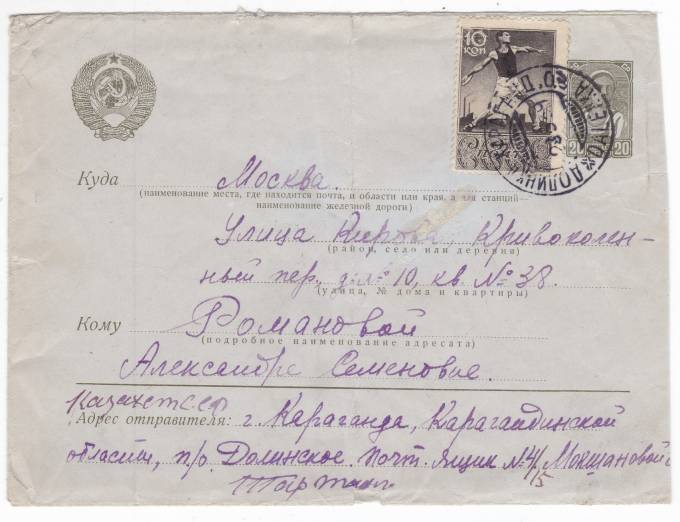 10
КОП
20 20
ДОЛИНК
Куда Москва.
(наименование места, где находится почта, и области или края, а для станций—
наименование железной дороги)
Улица Кирова, Кривоколен-
(район, село или деревня)
ный пер., д. № 10, кв. № 38.
(улица, № дома и квартиры)
Кому Романовой
(подробное наименование адресата)
Александре Семеновне.
Казахст ССР
Адрес отправителя: г. Караганда, Карагандинской
области, п/о. Долинское. Почт. ящик № 4/5 Мокшановой